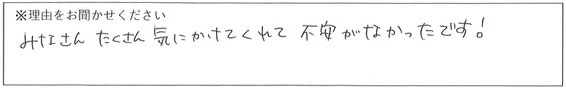 ※理由をお聞かせください
みなさん たくさん 気にかけてくれて 不安がなかったです!